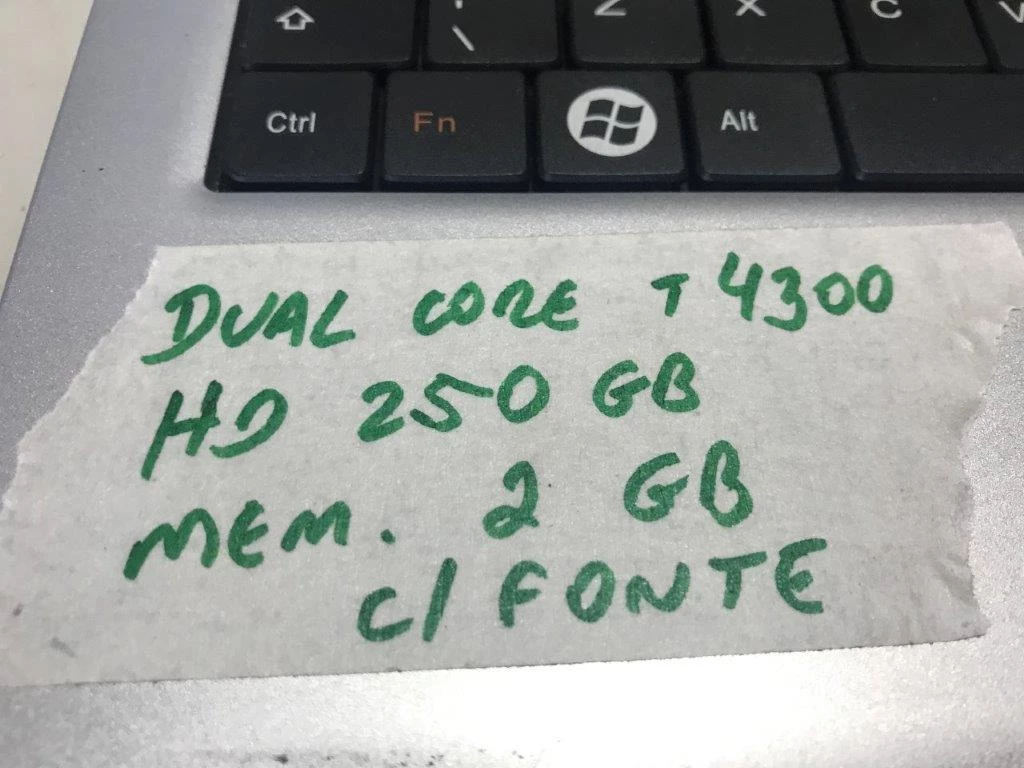 ' Z X C V
\
Ctrl Fn Alt
DUAL CORE T4300
HD 250 GB
MEM. 2 GB
C/ FONTE